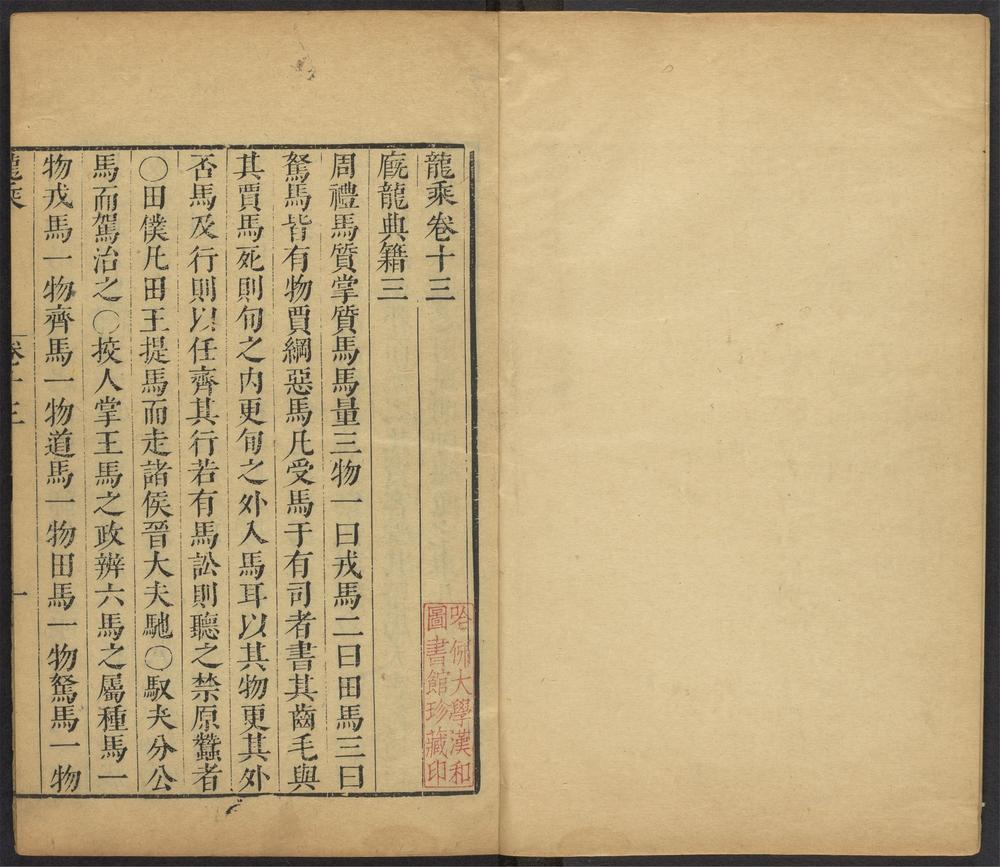 龍乘卷十三
廐龍典籍三
周禮馬質掌質馬馬量三物一曰戎馬二曰田馬三曰
駑馬皆有物賈綱惡馬凡受馬于有司者書其齒毛與
其賈馬死則旬之内更旬之外入馬耳以其物更其外
否馬及行則以任齊其行若有馬訟則聽之禁原蠶者
○田僕凡田王提馬而走諸侯晉大夫馳○馭夫分公
馬而駕治之○挍人掌王馬之政辨六馬之屬種馬一
物戎馬一物齊馬一物道馬一物田馬一物駑馬一物
龍乘
卷十三
一
哈佛大學漢和
圖書館珍藏印